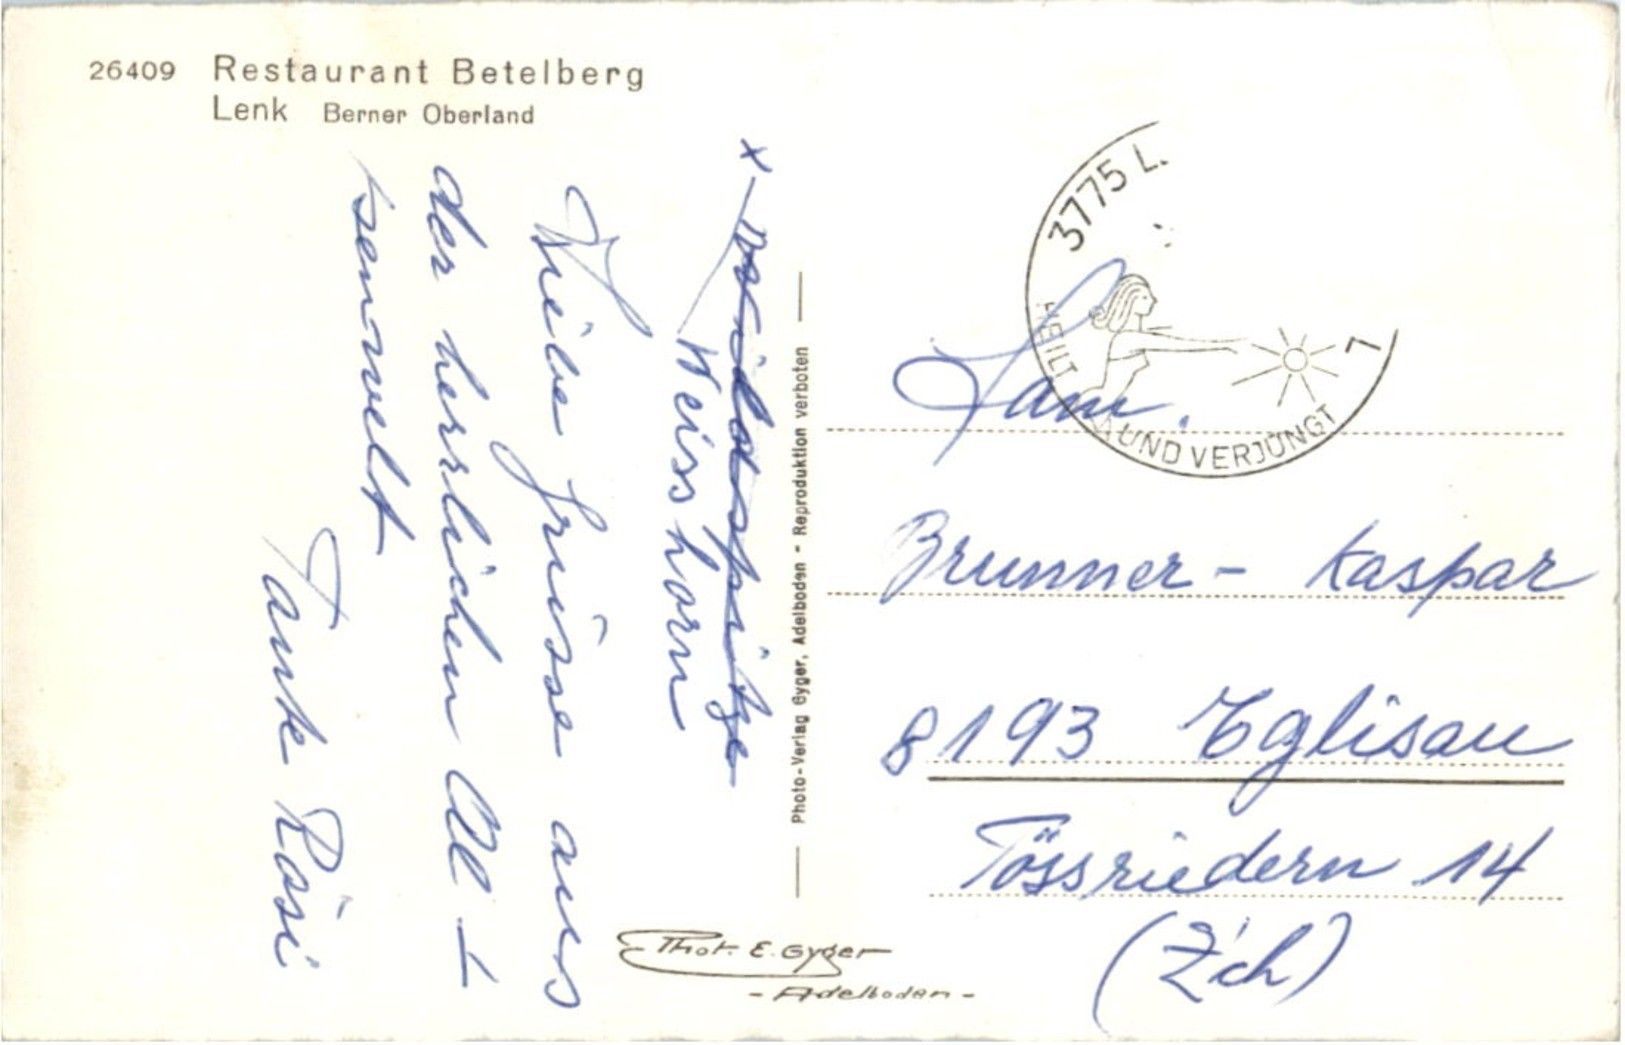 26409 Restaurant Betelberg
Lenk Berner Oberland
x Wildospitze
Weisshorn
Liebe Grüsse aus
der herrlichen All-
penwelt
Tante Rösi
Photo-Verlag Gyger, Adelboden - Reproduktion verboten
3775 L.
HEILT UND VERJÜNGT
7
Fam.
Brunner - Kaspar
8193 Eglisau
Tössriedern 14
(Z'ch)
Phot. E. Gyger
- Adelboden -